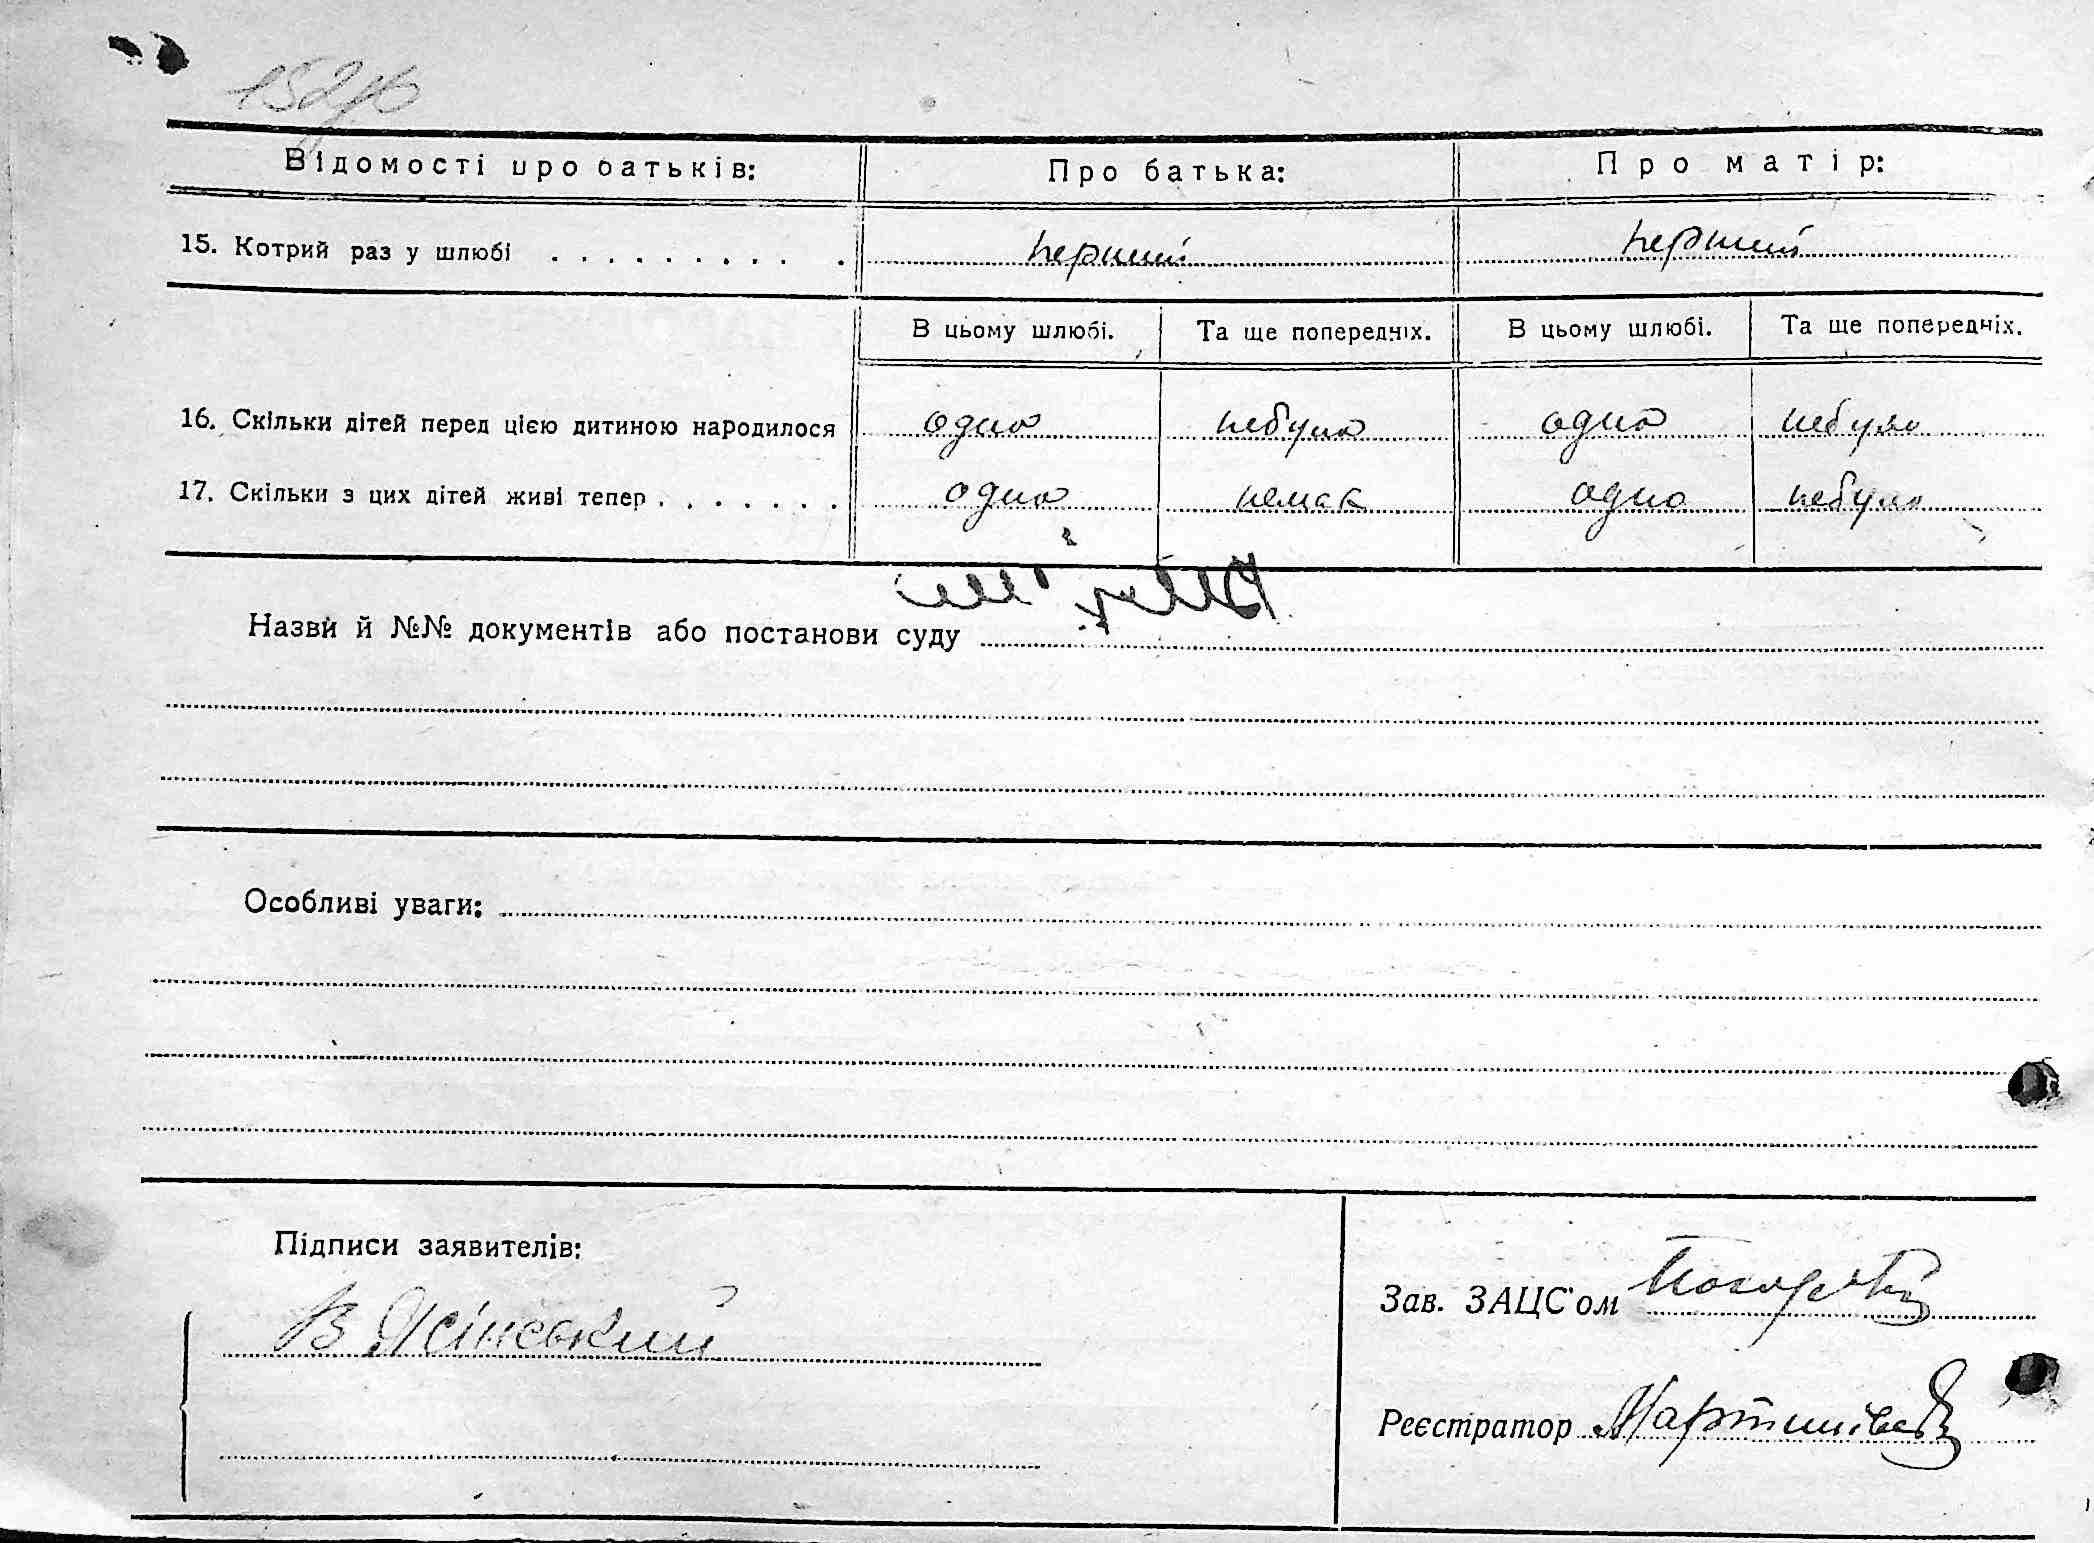 Відомості про батьків: Про батька: Про матір:
15. Котрий раз у шлюбі . . . . . . . . . . перший перший
В цьому шлюбі. Та ще попередніх. В цьому шлюбі. Та ще попередніх.
16. Скільки дітей перед цією дитиною народилося одно небуло одно небуло
17. Скільки з цих дітей живі тепер . . . . . . . одно немає одно небуло
Назви й №№ документів або постанови суду
Особливі уваги:
Підписи заявителів:
Зав. ЗАЦС'ом
В Ясінський
Реєстратор